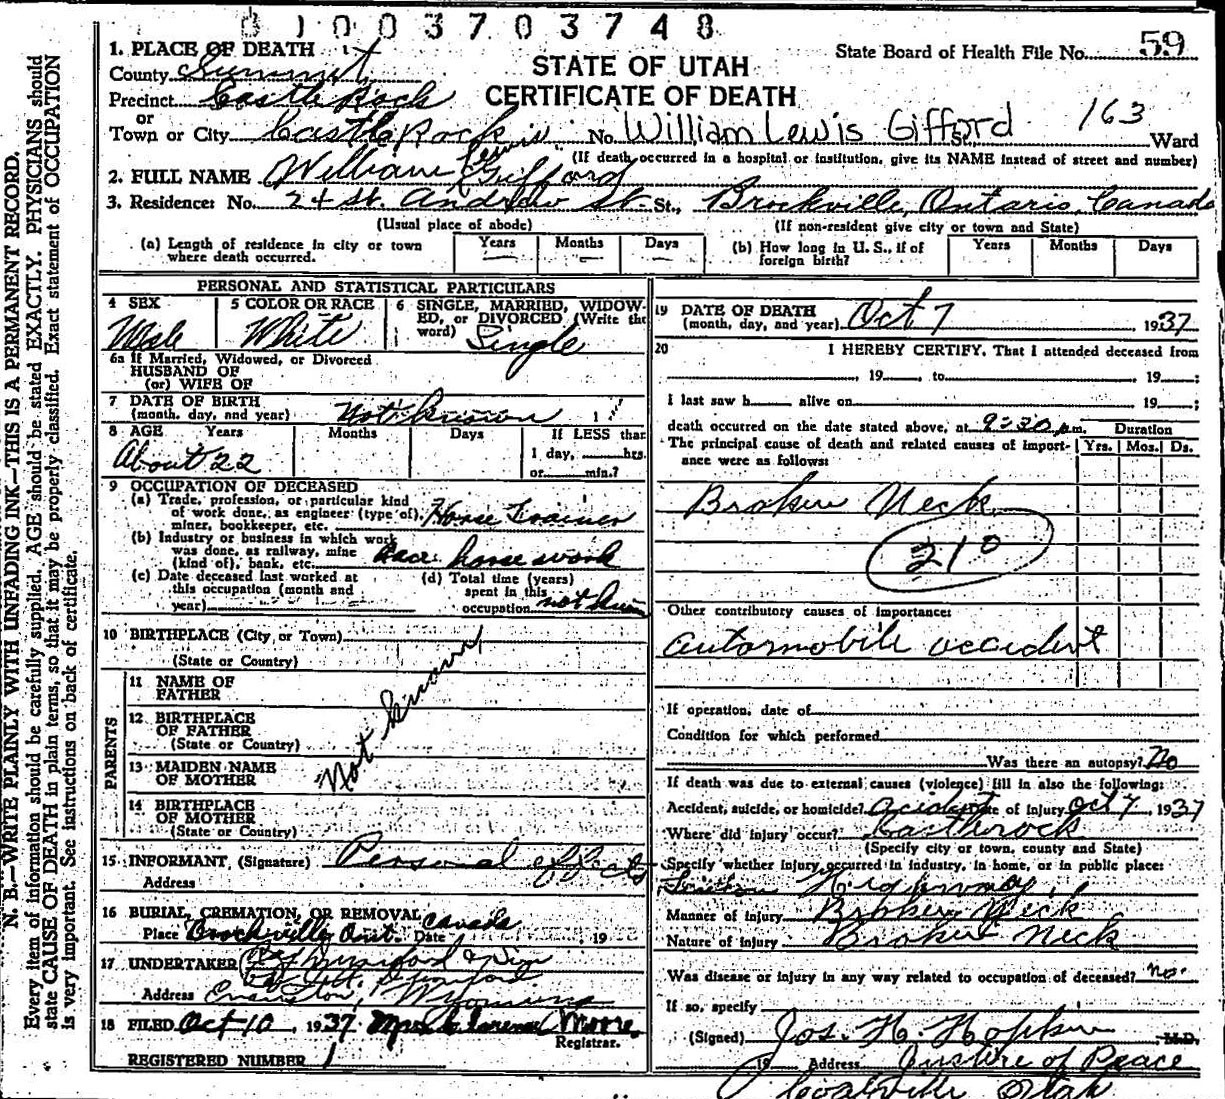 0 1 0 0 3 7 0 3 7 4 8
State Board of Health File No. 59
STATE OF UTAH
CERTIFICATE OF DEATH
1. PLACE OF DEATH
County Summit
Precinct Castle Rock
or
Town or City Castle Rock No. William Lewis Gifford St., 163 Ward
(If death occurred in a hospital or institution, give its NAME instead of street and number)
2. FULL NAME William Lewis Gifford
3. Residence: No. 24 St. Andrew St. St., Brockville, Ontario, Canada
(Usual place of abode) (If non-resident give city or town and State)
(a) Length of residence in city or town where death occurred. Years Months Days
(b) How long in U. S., if of foreign birth? Years Months Days
PERSONAL AND STATISTICAL PARTICULARS
4 SEX Male
5 COLOR OR RACE White
6 SINGLE, MARRIED, WIDOWED, OR DIVORCED (Write the word) Single
6a If Married, Widowed, or Divorced
HUSBAND OF
(or) WIFE OF
7 DATE OF BIRTH
(month, day, and year) Not known 1
8 AGE Years Months Days If LESS than
About 22
1 day, hrs.
or min.?
9 OCCUPATION OF DECEASED
(a) Trade, profession, or particular kind
of work done, as engineer (type of),
miner, bookkeeper, etc. Horse Trainer
(b) Industry or business in which work
was done, as railway, mine
(kind of), bank, etc. Race horse work
(c) Date deceased last worked at
this occupation (month and
year)
(d) Total time (years)
spent in this
occupation not known
10 BIRTHPLACE (City or Town)
(State or Country)
PARENTS
11 NAME OF
FATHER
12 BIRTHPLACE
OF FATHER
(State or Country)
Not known
13 MAIDEN NAME
OF MOTHER
14 BIRTHPLACE
OF MOTHER
(State or Country)
15 INFORMANT, (Signature) Personal effects
Address
16 BURIAL, CREMATION, OR REMOVAL Canada
Place Brockville Ont. Date , 19
17 UNDERTAKER
Address Evanston, Wyoming
18 FILED Oct 10, 1937 Moore
Registrar.
REGISTERED NUMBER 1
19 DATE OF DEATH
(month, day, and year) Oct 7 1937
20 I HEREBY CERTIFY, That I attended deceased from
, 19 , to , 19 ;
I last saw h alive on , 19 ;
death occurred on the date stated above, at 9:30 p.m. Duration
The principal cause of death and related causes of importance were as follows: Yrs. Mos. Ds.
Broken Neck
210
Other contributory causes of importance:
automobile accident
If operation, date of
Condition for which performed
Was there an autopsy? No
If death was due to external causes (violence) fill in also the following:
Accident, suicide, or homicide? Acident Date of injury Oct 7 1937
Where did injury occur? Castlerock
(Specify city or town, county and State)
Specify whether injury occurred in industry, in home, or in public place:
Highway
Manner of injury Broken Neck
Nature of injury Broken Neck
Was disease or injury in any way related to occupation of deceased? no.
If so, specify
(Signed) Jos. H. Hopkin M.D.
19 Address Justice of Peace
Coalville Utah
N. B.—WRITE PLAINLY WITH UNFADING INK—THIS IS A PERMANENT RECORD.
Every item of information should be carefully supplied. AGE should be stated EXACTLY. PHYSICIANS should
state CAUSE OF DEATH in plain terms, so that it may be properly classified. Exact statement of OCCUPATION
is very important. See instructions on back of certificate.